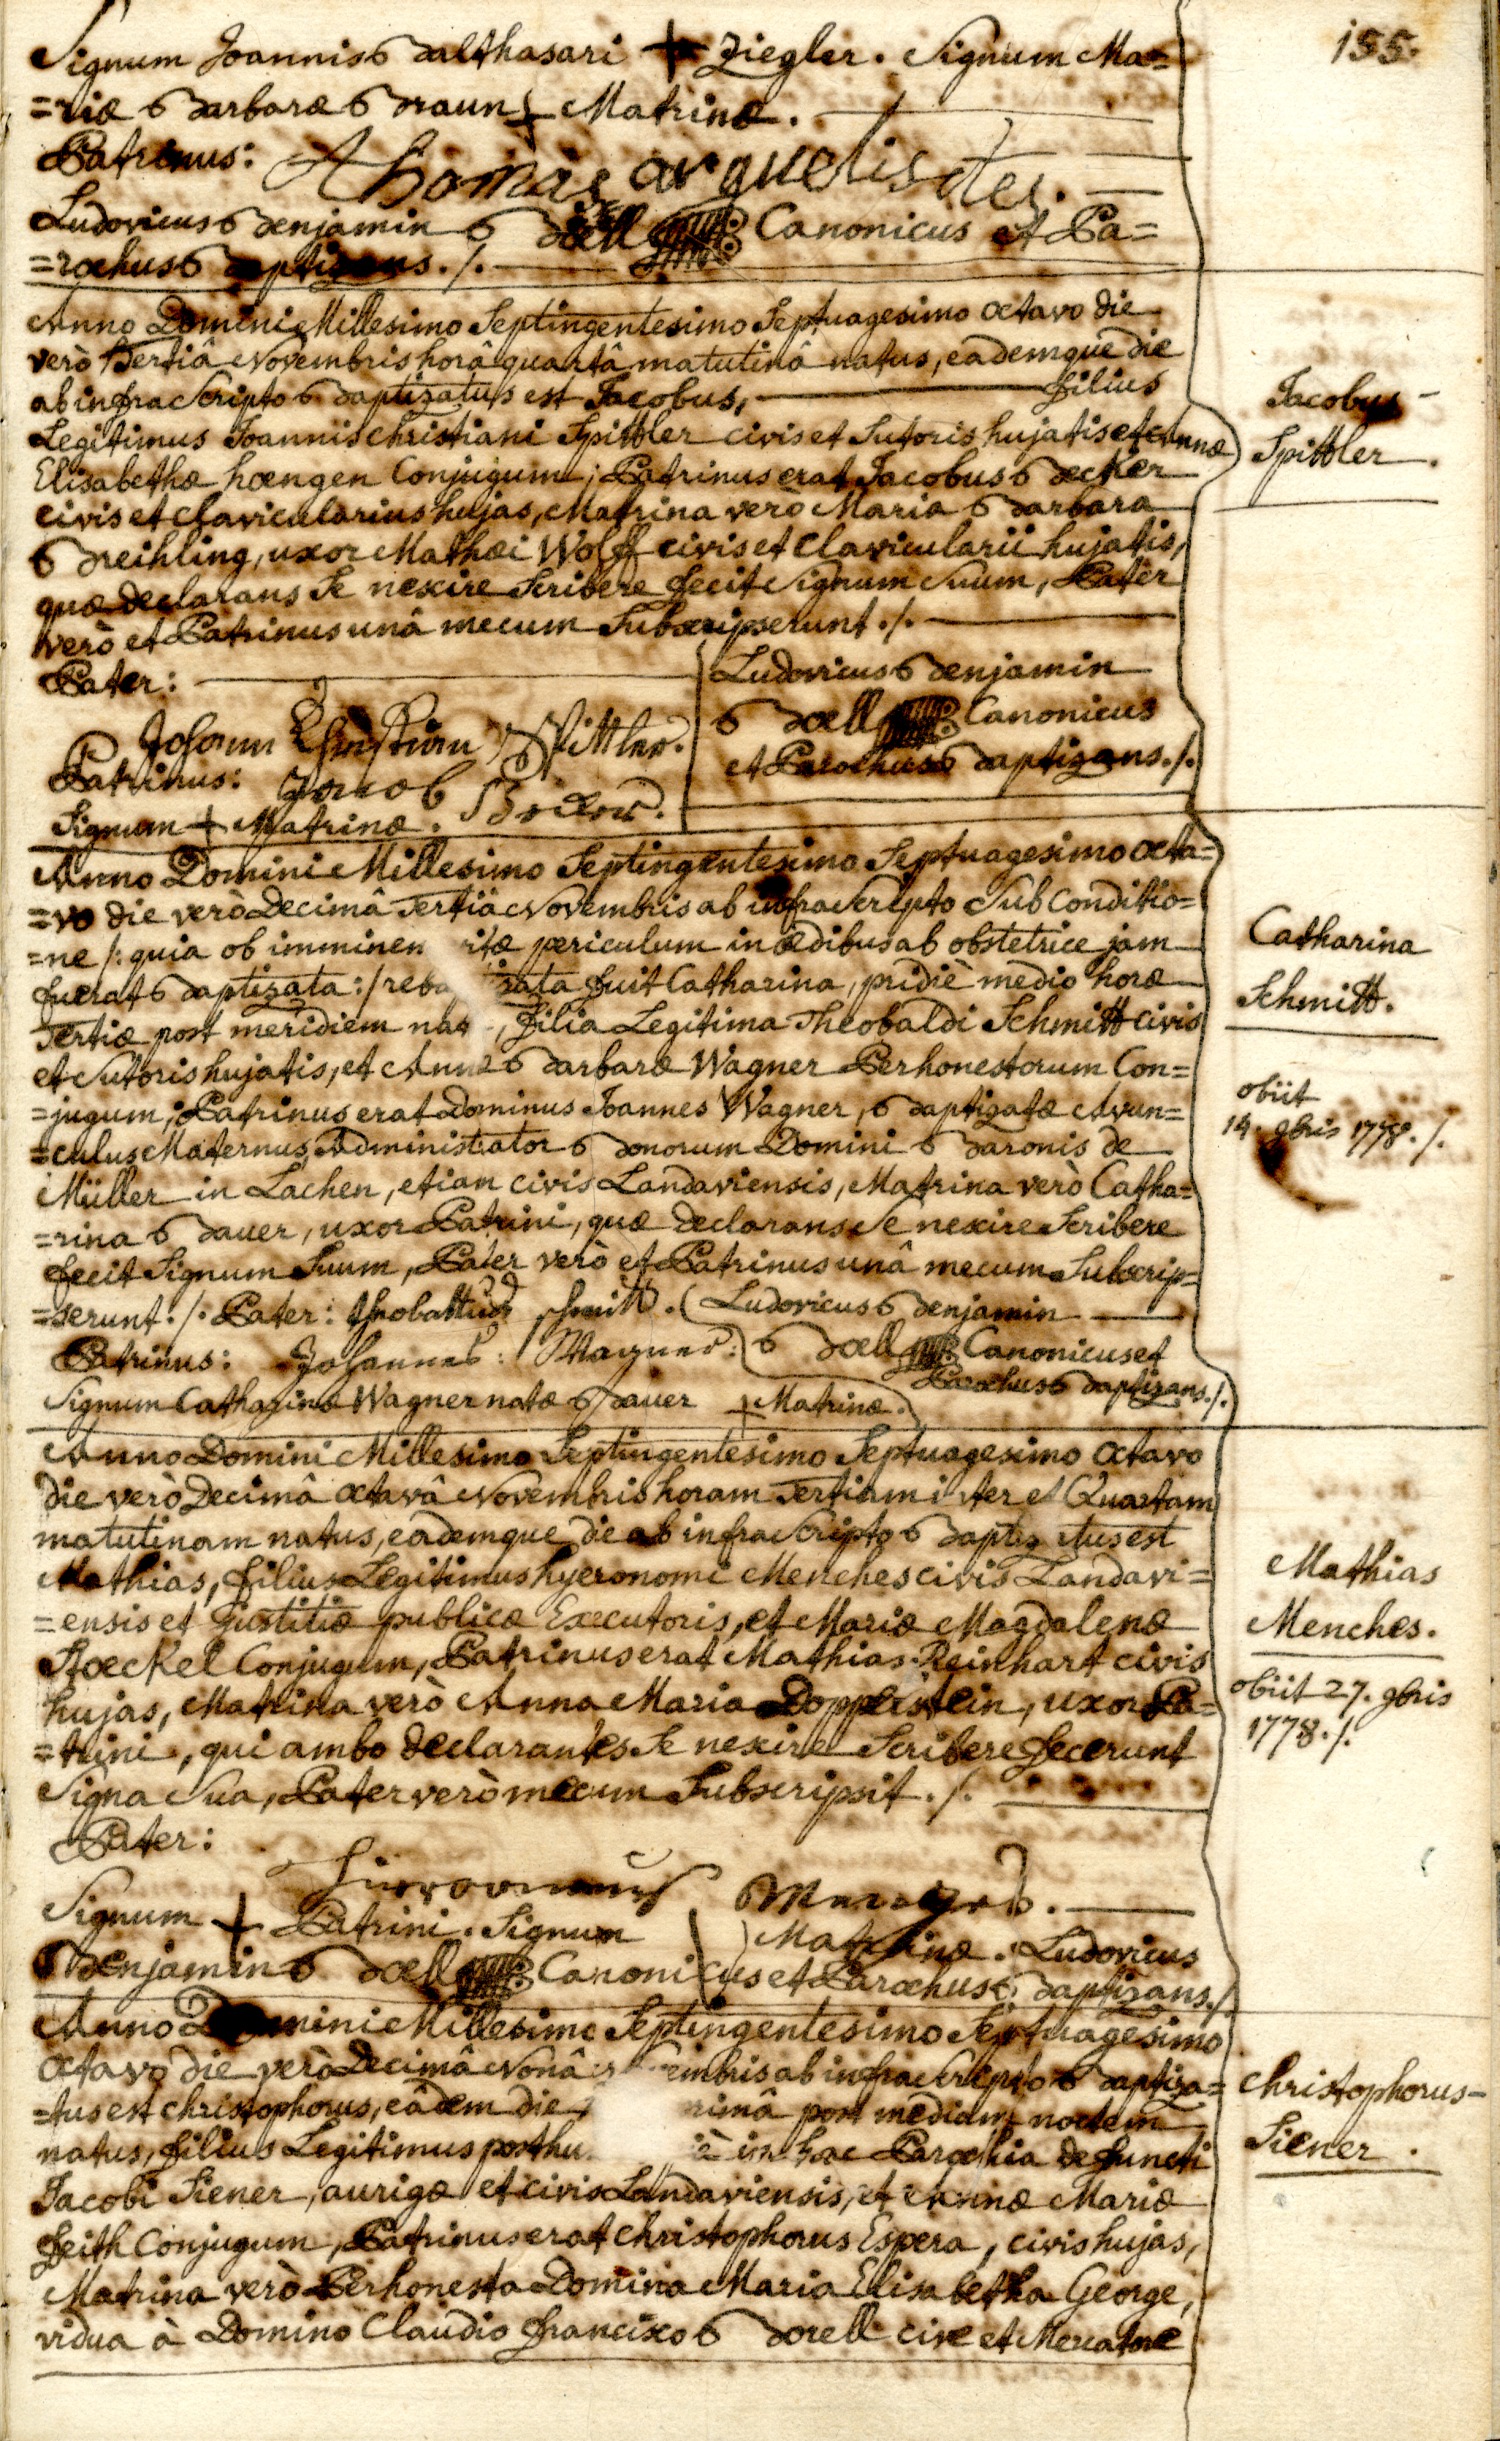 155.
Signum Joannis Balthasari + Ziegler. Signum Ma=
=riæ Barbaræ Braun + Matrinæ.
Patrinus: Thomas
Ludovicus Benjamin Böell Canonicus et Pa=
=rochus Baptizans ./.
Anno Domini Millesimo Septingentesimo Septuagesimo octavo die
verò Tertiâ Novembris horâ quartâ matutinâ natus, eademque die
ab infra Scripto Baptizatus est Jacobus, filius
Legitimus Joannis christiani Spittler civis et Sutoris hujatis et Annæ
Elisabethæ hoengen Conjugum; Patrinus erat Jacobus Becker
civis et clavicularius hujas, Matrina verò Maria Barbara
Breihling, uxor Mathæi Wolff civis et Clavicularii hujatis,
quæ declarans Se nescire Scribere fecit Signum Suum, Pater
verò et Patrinus unâ mecum Subscripserunt ./.
Pater:
Johann Christian Spittler.
Patrinus: Jacob Becker.
Signum + Matrinæ.
Ludovicus Benjamin
Böell Canonicus
et Parochus Baptizans ./.
Jacobus
Spittler.
Anno Domini Millesimo Septingentesimo Septuagesimo octa=
=vo die verò Decimâ Tertiâ Novembris ab infra Scripto Sub Conditio=
=ne /: quia ob imminen vitæ periculum in ædibus ab obstetrice jam
fuerat Baptizata :/ reba zata fuit Catharina, pridiè medio horæ
Tertiæ post meridiem nat , filia Legitima Theobaldi Schmitt civis
et Sutoris hujatis, et Annæ Barbaræ Wagner Perhonestorum Con=
=jugum; Patrinus erat Dominus Joannes Wagner, Baptizatæ Avun=
=culus Maternus, Administrator Bonorum Domini Baronis de
Müller in Lachen, etiam civis Landaviensis, Matrina verò Catha=
=rina Bauer, uxor Patrini, quæ declarans Se nescire Scribere
fecit Signum Suum, Pater verò et Patrinus unâ mecum Subscrip=
=serunt ./. Pater: Schmitt.
Patrinus: Johannes Wagner.
Signum Catharinæ Wagner natæ Bauer + Matrinæ.
Ludovicus Benjamin
Böell Canonicus et
Parochus Baptizans ./.
Catharina
Schmitt.
obiit
14. 9bris 1778 ./.
Anno Domini Millesimo Septingentesimo Septuagesimo octavo
die verò Decimâ octavâ Novembris horam Tertiam inter et Quartam
matutinam natus, eademque die ab infra Scripto Baptizatus est
Mathias, filius Legitimus hyeronomi Menches civis Landavi=
=ensis et justitiæ publicæ Executoris, et Mariæ Magdalenæ
Stoeckel Conjugum, Patrinus erat Mathias Reinhart civis
hujas, Matrina verò Anna Maria Dopperstein, uxor Pa=
=trini, qui ambo declarantes Se nescire Scribere fecerunt
Signa Sua, Pater verò mecum Subscripsit ./.
Pater:
Signum + Patrini. Signum Matrinæ. Ludovicus
Benjamin Böell Canonicus et Parochus Baptizans ./.
Mathias
Menches.
obiit 27. 9bris
1778 ./.
Anno Domini Millesimo Septingentesimo Septuagesimo
octavo die verò Decimâ Nonâ embris ab infra Scripto Baptiza=
=tus est christophorus, eâdem die rimâ post mediam noctem
natus, filius Legitimus posthu in hac Parochia defuncti
Jacobi Siener, aurigæ et civis Landaviensis, et Annæ Mariæ
feith Conjugum, Patrinus erat christophorus Espera, civis hujas,
Matrina verò Perhonesta Domina Maria Elisabetha George,
vidua à Domino Claudio francisco Borell cive et Mercatore
christophorus
Siener.